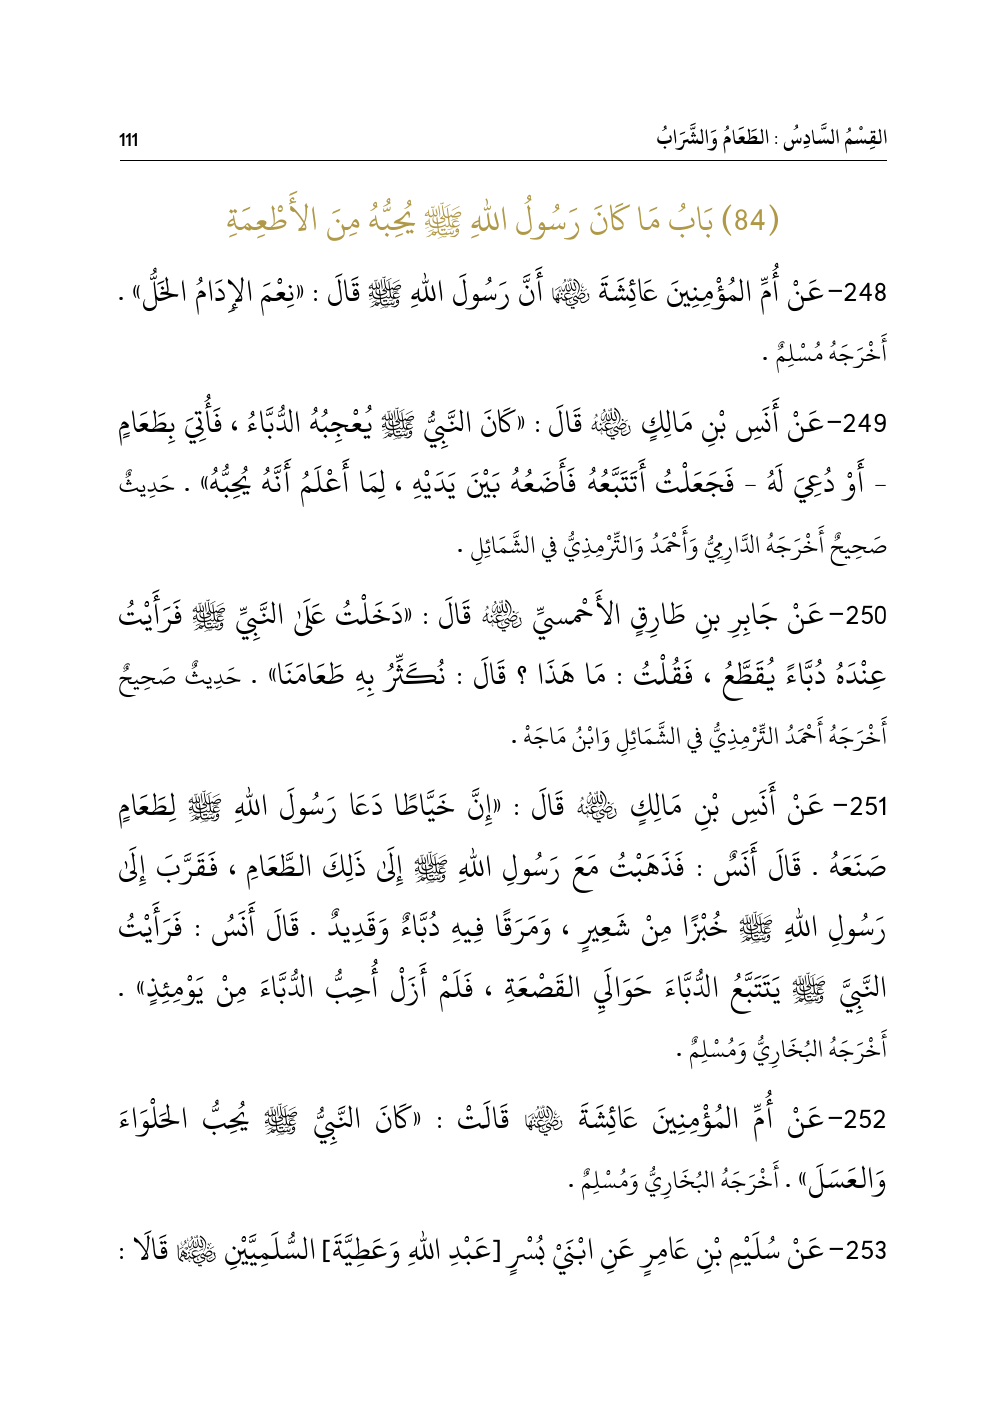 القِسْمُ السَّادِسُ : الطَعَامُ وَالشَّرَابُ 111
(84) بَابُ مَا كَانَ رَسُولُ اللهِ ﷺ يُحِبُّهُ مِنَ الأَطْعِمَةِ
248- عَنْ أُمِّ المُؤْمِنِينَ عَائِشَةَ رضي الله عنها أَنَّ رَسُولَ اللهِ ﷺ قَالَ : «نِعْمَ الإِدَامُ الخَلُّ» .
أَخْرَجَهُ مُسْلِمٌ .
249- عَنْ أَنَسِ بْنِ مَالِكٍ رضي الله عنه قَالَ : «كَانَ النَّبِيُّ ﷺ يُعْجِبُهُ الدُّبَّاءُ ، فَأُتِيَ بِطَعَامٍ
- أَوْ دُعِيَ لَهُ - فَجَعَلْتُ أَتَتَبَّعُهُ فَأَضَعُهُ بَيْنَ يَدَيْهِ ، لِمَا أَعْلَمُ أَنَّهُ يُحِبُّهُ» . حَدِيثٌ
صَحِيحٌ أَخْرَجَهُ الدَّارِمِيُّ وَأَحْمَدُ وَالتِّرْمِذِيُّ في الشَّمَائِلِ .
250- عَنْ جَابِرِ بنِ طَارِقٍ الأَحْمسيِّ رضي الله عنه قَالَ : «دَخَلْتُ عَلَىٰ النَّبِيِّ ﷺ فَرَأَيْتُ
عِنْدَهُ دُبَّاءً يُقَطَّعُ ، فَقُلْتُ : مَا هَذَا ؟ قَالَ : نُكَثِّرُ بِهِ طَعَامَنَا» . حَدِيثٌ صَحِيحٌ
أَخْرَجَهُ أَحْمَدُ التِّرْمِذِيُّ في الشَّمَائِلِ وَابْنُ مَاجَهْ .
251- عَنْ أَنَسِ بْنِ مَالِكٍ رضي الله عنه قَالَ : «إِنَّ خَيَّاطًا دَعَا رَسُولَ اللهِ ﷺ لِطَعَامٍ
صَنَعَهُ . قَالَ أَنَسٌ : فَذَهَبْتُ مَعَ رَسُولِ اللهِ ﷺ إِلَىٰ ذَلِكَ الطَّعَامِ ، فَقَرَّبَ إِلَىٰ
رَسُولِ اللهِ ﷺ خُبْزًا مِنْ شَعِيرٍ ، وَمَرَقًا فِيهِ دُبَّاءٌ وَقَدِيدٌ . قَالَ أَنَسُ : فَرَأَيْتُ
النَّبِيَّ ﷺ يَتَتَبَّعُ الدُّبَّاءَ حَوَالَيِ القَصْعَةِ ، فَلَمْ أَزَلْ أُحِبُّ الدُّبَّاءَ مِنْ يَوْمِئِذٍ» .
أَخْرَجَهُ البُخَارِيُّ وَمُسْلِمٌ .
252- عَنْ أُمِّ المُؤْمِنِينَ عَائِشَةَ رضي الله عنها قَالَتْ : «كَانَ النَّبِيُّ ﷺ يُحِبُّ الحَلْوَاءَ
وَالعَسَلَ» . أَخْرَجَهُ البُخَارِيُّ وَمُسْلِمٌ .
253- عَنْ سُلَيْمِ بْنِ عَامِرٍ عَنِ ابْنَيْ بُسْرٍ [عَبْدِ اللهِ وَعَطِيَّةَ] السُّلَمِيَّيْنِ رضي الله عنهما قَالَا :